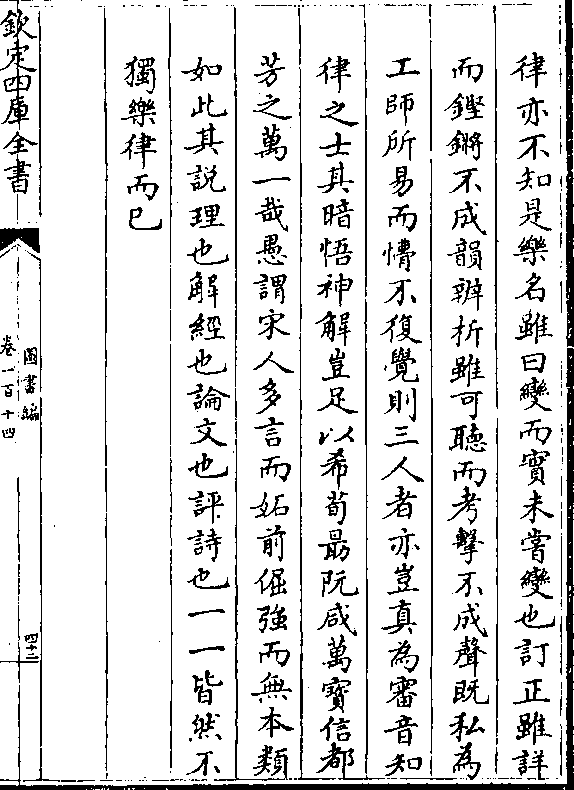 律亦不知是樂名雖曰變而實未嘗變也訂正雖詳
而鏗鏘不成韻辨析雖可聽而考擊不成聲既私為
工師所易而懵不復覺則三人者亦豈真為審音知
律之士其暗悟神解豈足以希荀勗阮咸萬寶信都
芳之萬一哉愚謂宋人多言而妬前倔強而無本類
如此其説理也解經也論文也評詩也一一皆然不
獨樂律而已
欽定四庫全書
圖書編
卷一百十四
四十二